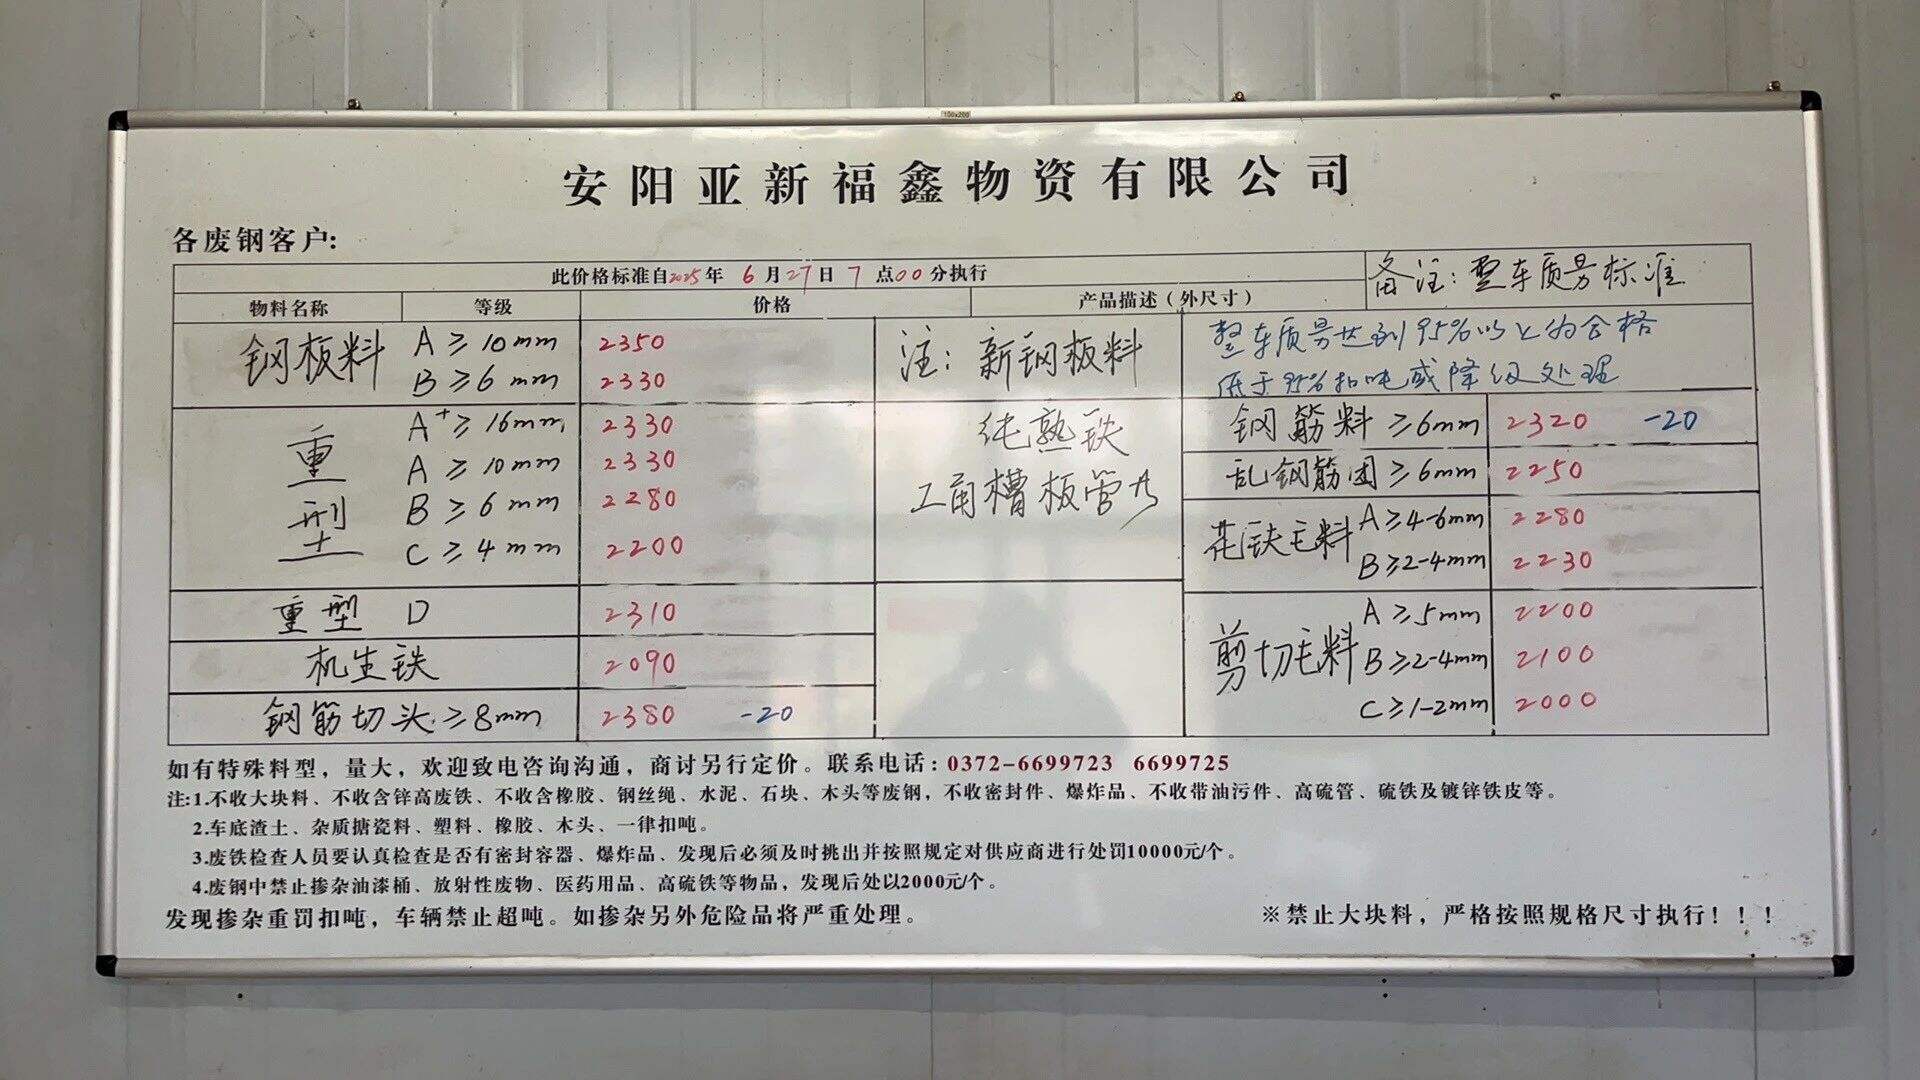 100x200
安阳亚新福鑫物资有限公司
各废钢客户:
此价格标准自2025年 6月27日 7点00分执行
备注:整车质量标准
物料名称 等级 价格 产品描述(外尺寸)
钢板料 A≥10mm 2350
B≥6mm 2330
注:新钢板料
整车质量达到95%以上为合格
低于95%扣吨或降级处理
重型 A⁺≥16mm 2330
A≥10mm 2330
B≥6mm 2280
C≥4mm 2200
纯熟铁
工角槽板管
钢筋料≥6mm 2320 -20
乱钢筋团≥6mm 2250
花铁毛料 A≥4-6mm 2280
B≥2-4mm 2230
重型 D 2310
机生铁 2090
钢筋切头≥8mm 2380 -20
剪切毛料 A≥5mm 2200
B≥2-4mm 2100
C≥1-2mm 2000
如有特殊料型,量大,欢迎致电咨询沟通,商讨另行定价。联系电话:0372-6699723 6699725
注:1.不收大块料、不收含锌高废铁、不收含橡胶、钢丝绳、水泥、石块、木头等废钢,不收密封件、爆炸品、不收带油污件、高硫管、硫铁及镀锌铁皮等。
2.车底渣土、杂质搪瓷料、塑料、橡胶、木头、一律扣吨。
3.废铁检查人员要认真检查是否有密封容器、爆炸品、发现后必须及时挑出并按照规定对供应商进行处罚10000元/个。
4.废钢中禁止掺杂油漆桶、放射性废物、医药用品、高硫铁等物品,发现后处以2000元/个。
发现掺杂重罚扣吨,车辆禁止超吨。如掺杂另外危险品将严重处理。
※禁止大块料,严格按照规格尺寸执行!!!